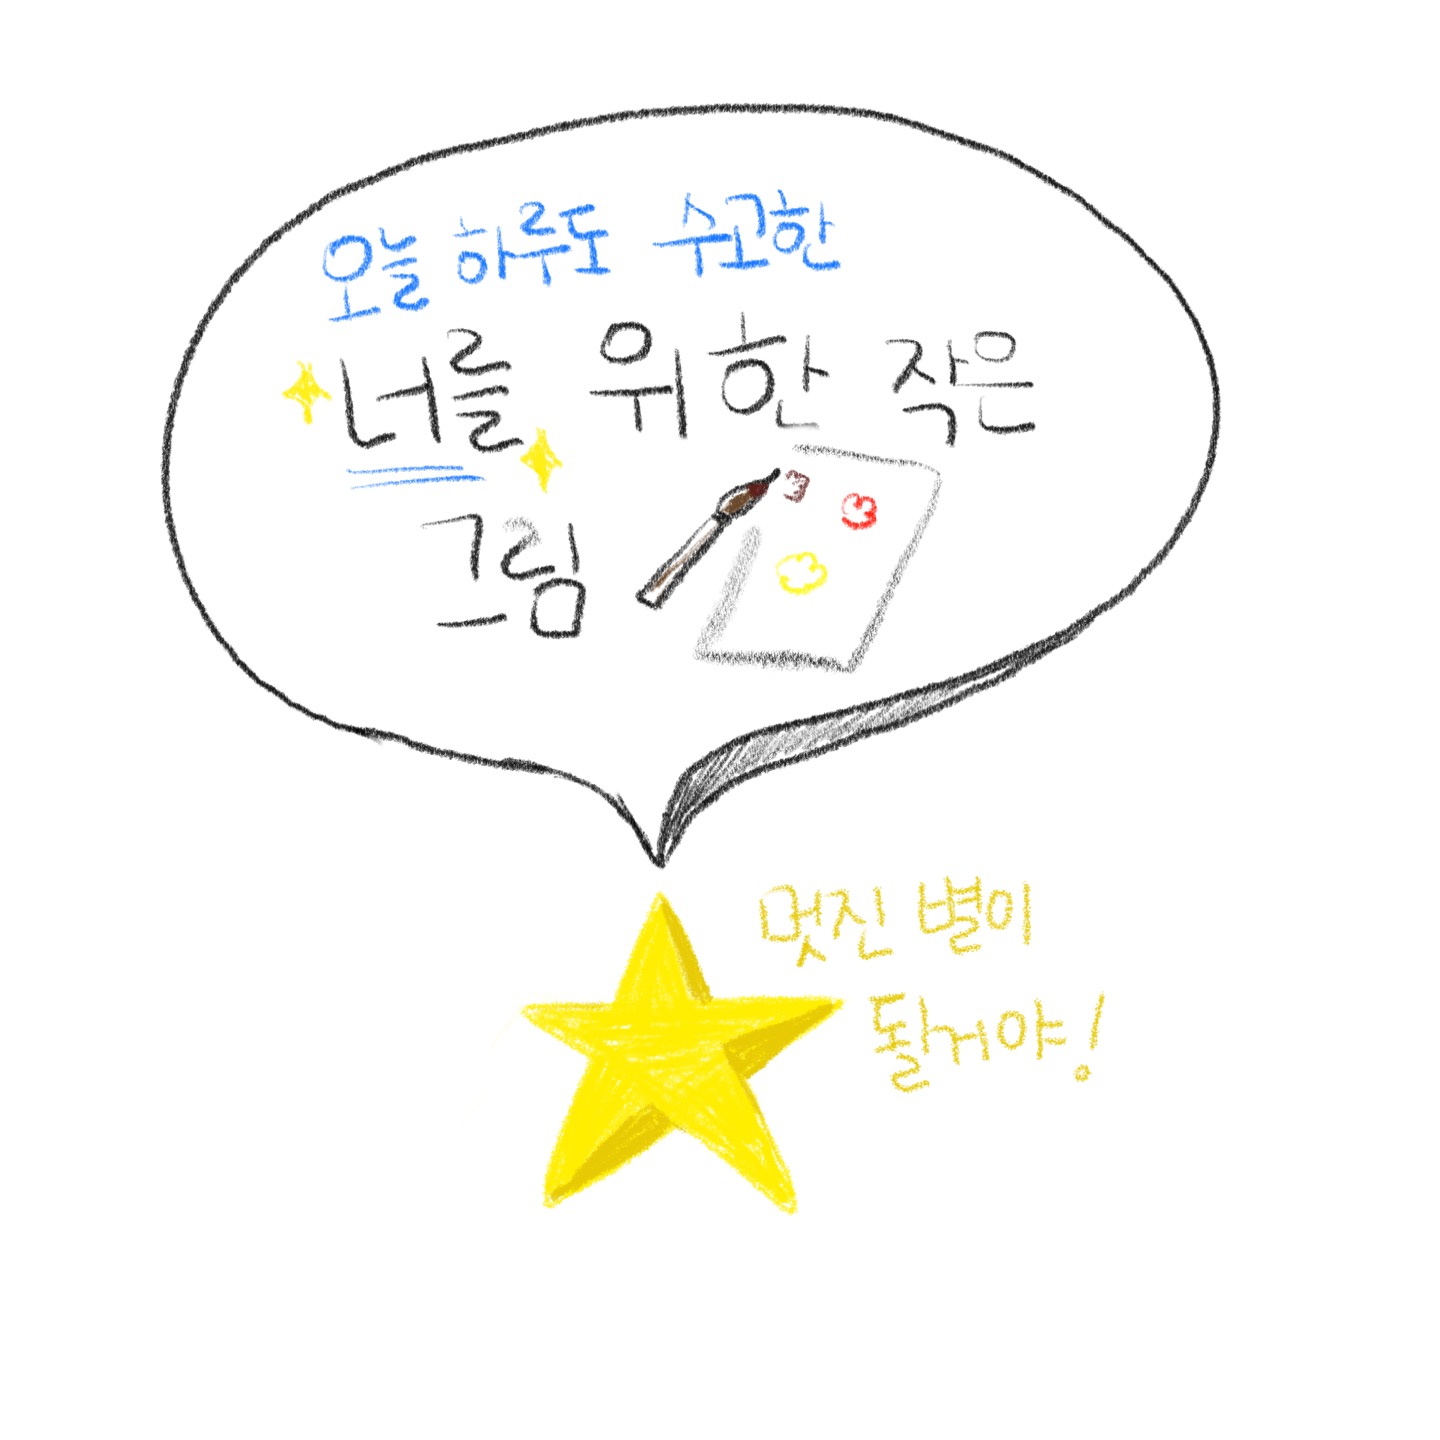 오늘 하루도 수고한
너를 위한 작은
그림
멋진 별이
돨거야!